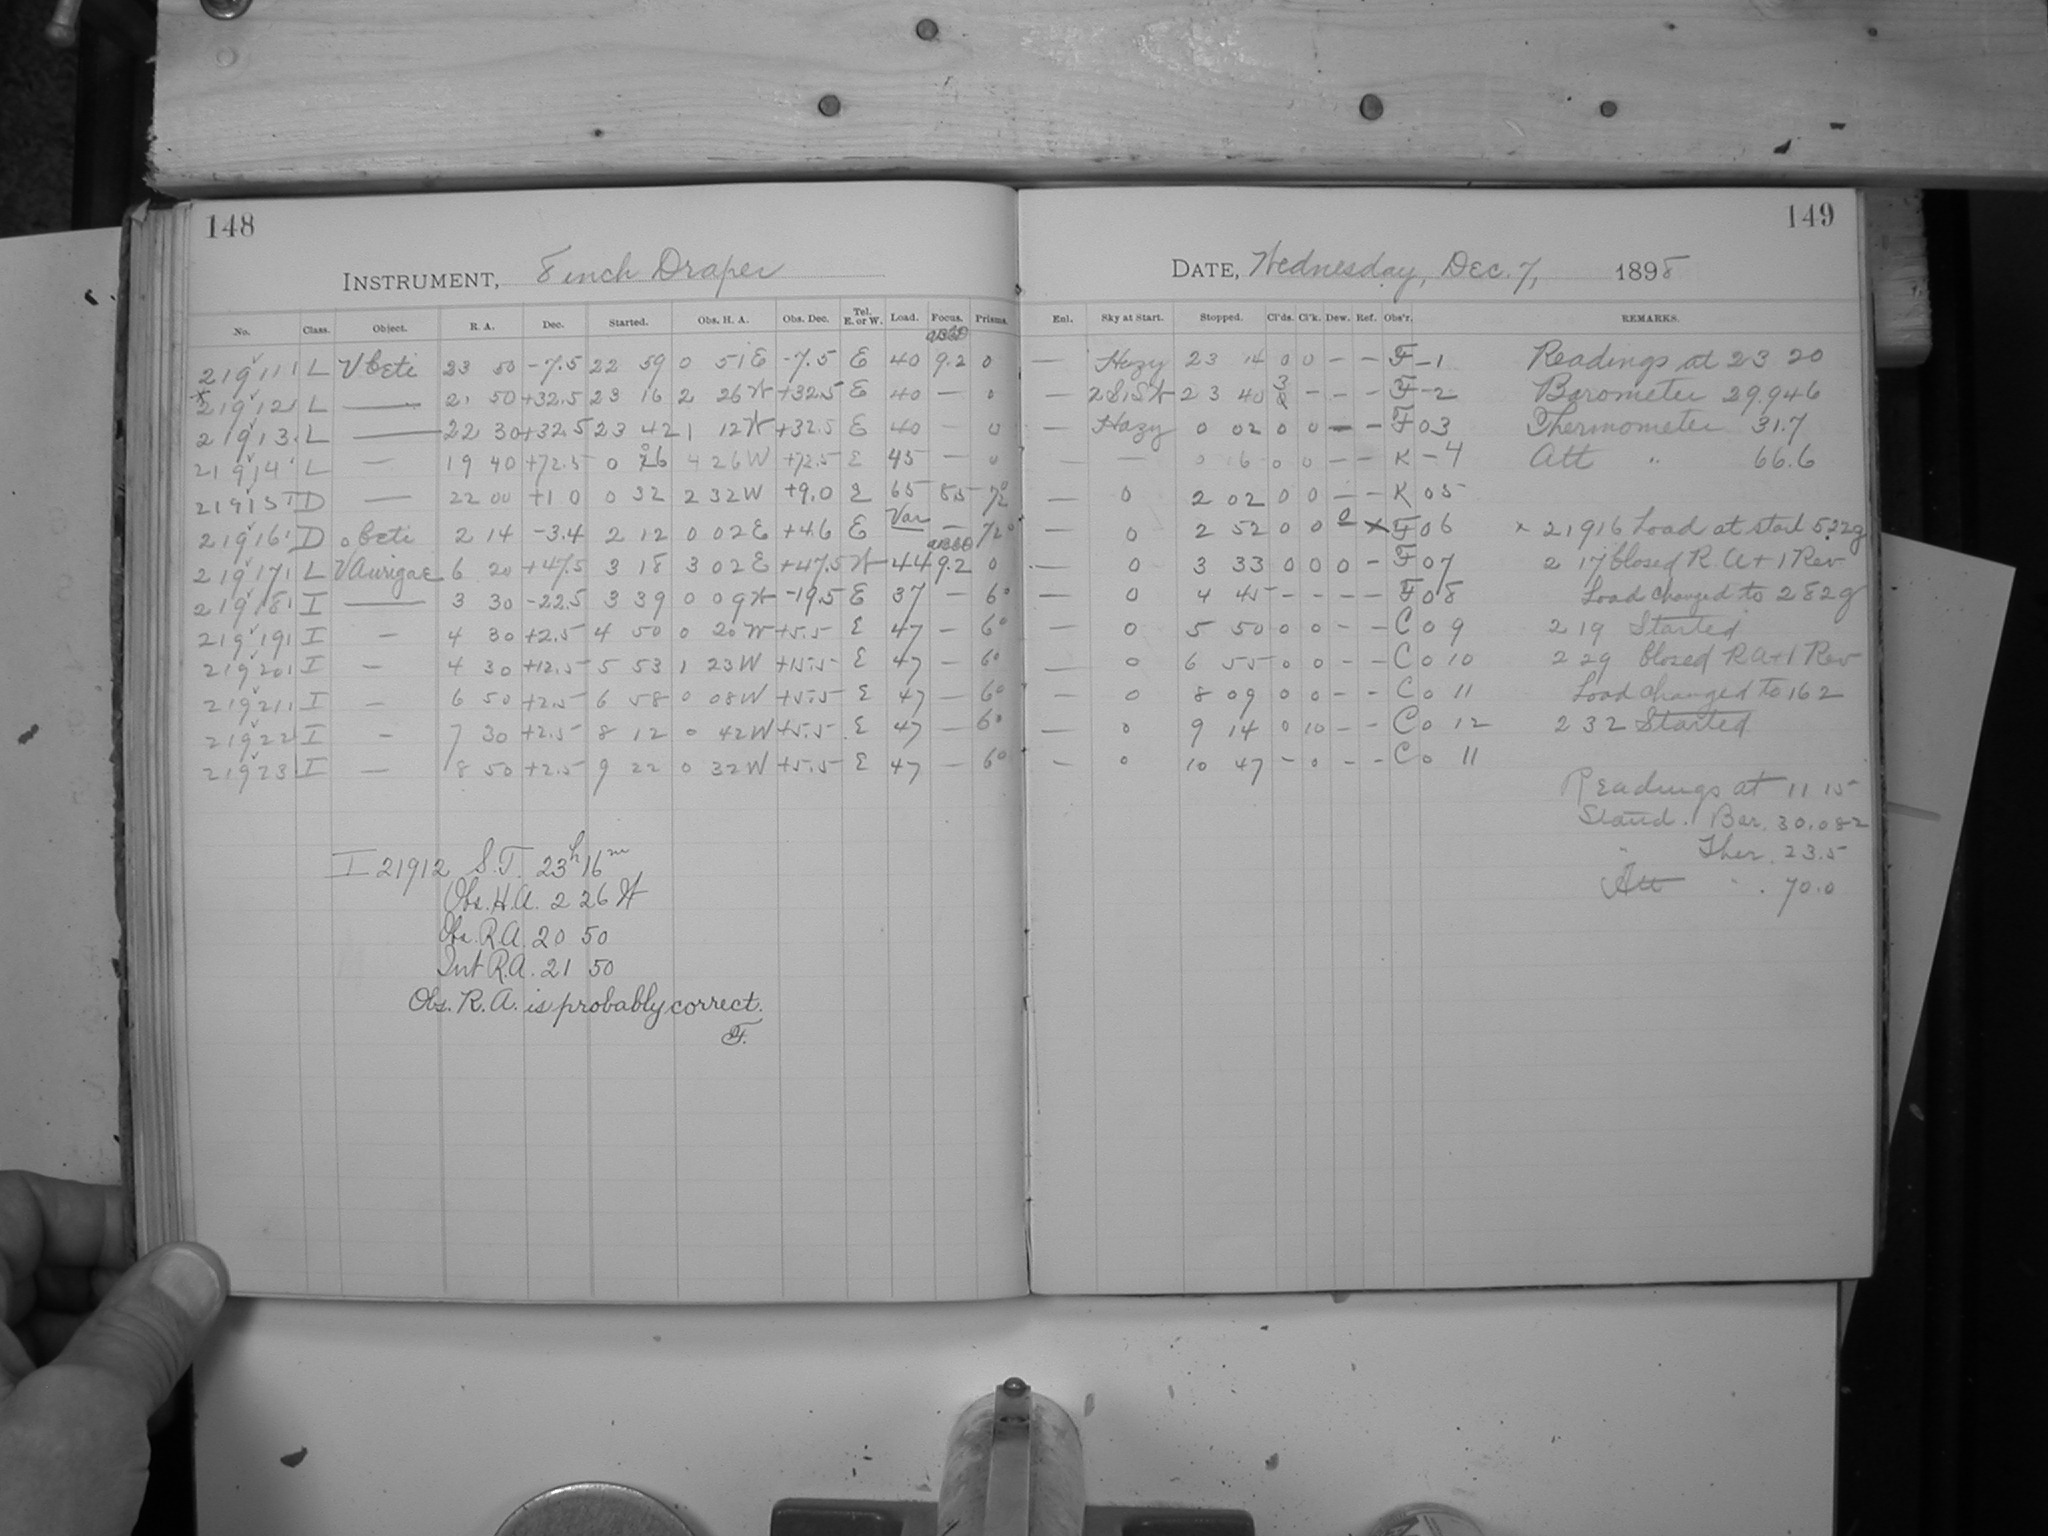 148
INSTRUMENT, 8 inch Draper
No. Class. Object. R. A. Dec. Started. Obs. H. A. Obs. Dec. Tel. E. or W. Load. Focus. Prisms.
21911 L V Ceti 23 50 -7.5 22 59 0 51 E -7.5 E 40 9.2 0
21912 L — 21 50 +32.5 23 16 2 26 W +32.5 E 40 — 0
21913 L — 22 30 +32.5 23 42 1 12 W +32.5 E 40 — 0
21914 L — 19 40 +72.5 0 06 4 26 W +72.5 E 45 — 0
21915 D — 22 00 +10 0 32 2 32 W +9.0 E 65 8.5
21916 D o Ceti 2 14 -3.4 2 12 0 02 E +4.6 E Var —
21917 L V Aurigae 6 20 +47.5 3 18 3 02 E +47.5 W 44 9.2 0
21918 I — 3 30 -22.5 3 39 0 09 W -19.5 E 37 — 6°
21919 I — 4 30 +2.5 4 50 0 20 W +5.5 E 47 — 6°
21920 I — 4 30 +12.5 5 53 1 23 W +15.5 E 47 — 6°
21921 I — 6 50 +2.5 6 58 0 08 W +5.5 E 47 — 6°
21922 I — 7 30 +2.5 8 12 0 42 W +5.5 E 47 — 6°
21923 I — 8 50 +2.5 9 22 0 32 W +5.5 E 47 — 6°
I 21912 S.T. 23h 16m
Obs. H.A. 2 26 W
Obs. R.A. 20 50
Int R.A. 21 50
Obs. R.A. is probably correct.
F.
149
DATE, Wednesday, Dec. 7, 1898
Enl. Sky at Start. Stopped. Cl'ds. Cl'k. Dew. Ref. Obs'r. REMARKS.
— Hazy 23 14 0 0 — — F - 1 Readings at 23 20
— 2 S, S W 23 40 3 — — — F - 2 Barometer 29.946
— Hazy 0 02 0 0 — — F 0 3 Thermometer 31.7
— — 0 16 0 0 — — K - 4 Att " 66.6
— 0 2 02 0 0 — — K 0 5
0 2 52 0 0 0 x F 0 6 x 21916 Load at start 522g
— 0 3 33 0 0 0 - F 0 7 2 17 Closed R A + 1 Rev
— 0 4 45 - - - - F 0 8 Load changed to 282g
— 0 5 50 0 0 - - C 0 9 2 19 Started
— 0 6 55 0 0 - - C 0 10 2 29 Closed R A + 1 Rev
— 0 8 09 0 0 - - C 0 11 Load changed to 162
— 0 9 14 0 10 - - C 0 12 2 32 Started
— 0 10 47 - 0 - - C 0 11
Readings at 11 15
Stand. Bar. 30.082
" Ther. 23.5
Att " . 70.0